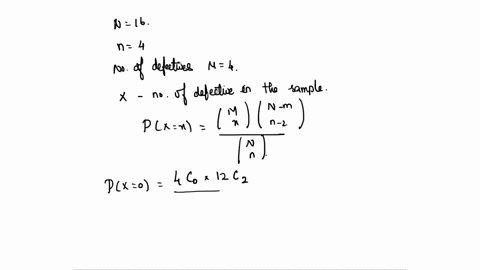 N = 16.
n = 4
No. of defectives M = 4.
X - no. of defective in the sample.
P(X=x) = (M x) (N-m n-2)
(N n)
P(X=0) = 4C0 × 12C2